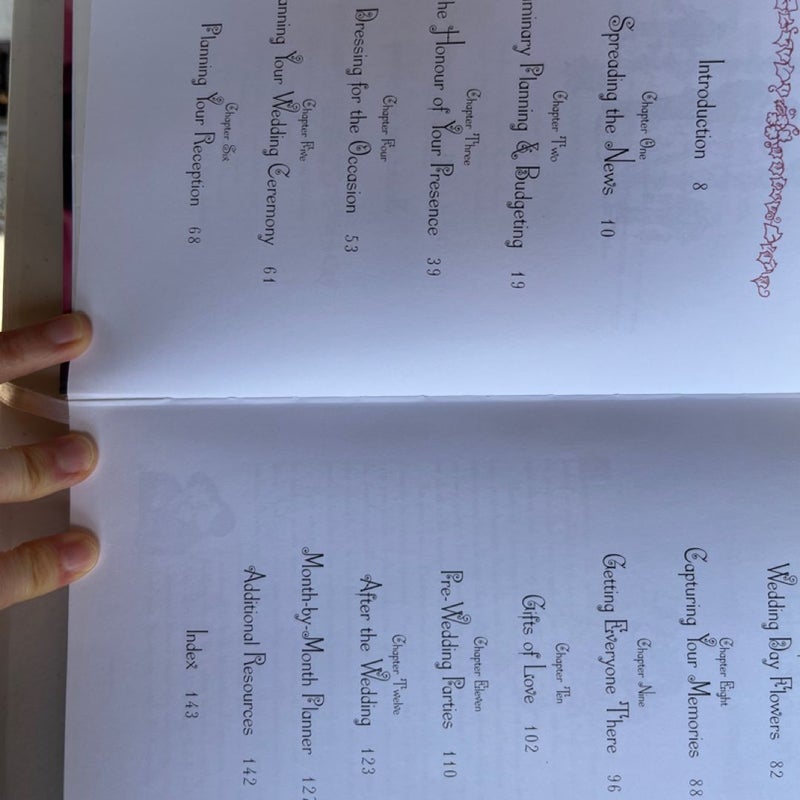 Introduction 8
Chapter One
Spreading the News 10
Chapter Two
minary Planning & Budgeting 19
Chapter Three
he Honour of Your Presence 39
Chapter Four
Dressing for the Occasion 53
Chapter Five
anning Your Wedding Ceremony 61
Chapter Six
Planning Your Reception 68
Wedding Day Flowers 82
Chapter Eight
Capturing Your Memories 88
Chapter Nine
Getting Everyone There 96
Chapter Ten
Gifts of Love 102
Chapter Eleven
Pre-Wedding Parties 110
Chapter Twelve
After the Wedding 123
Month-by-Month Planner 127
Additional Resources 142
Index 143